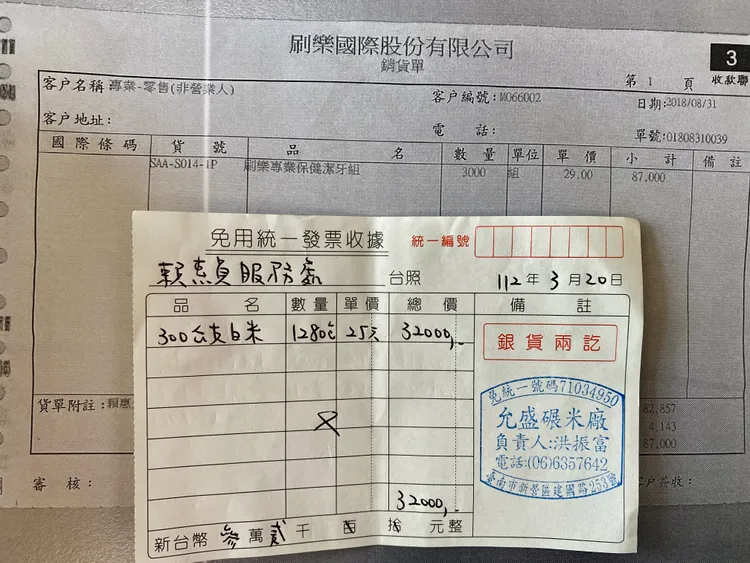 刷樂國際股份有限公司
3
銷貨單
收款聯
客户名稱:專業-零售(非營業人)
第 1 頁
客户編號:M066002
日期:2018/08/31
客户地址:
電話:
單號:01808310039
國際條碼 貨號 品名 數量 單位 單價 小計 備註
SAA-S014-1P 刷樂專業保健潔牙組 3000 組 29.00 87,000
免用統一發票收據
統一編號
賴惠貞服務處 台照
112年3月20日
品名 數量 單價 總價 備註
300公克白米 1280包 25元 32000,-
銀貨兩訖
免統一號碼71034950
允盛碾米廠
負責人:洪振富
電話:(06)6357642
臺南市新營區建國路253號
貨單附註:賴惠
82,857
4,143
87,000
32000,-
審核:
客户簽收:
新台幣 參萬貳千百拾元整